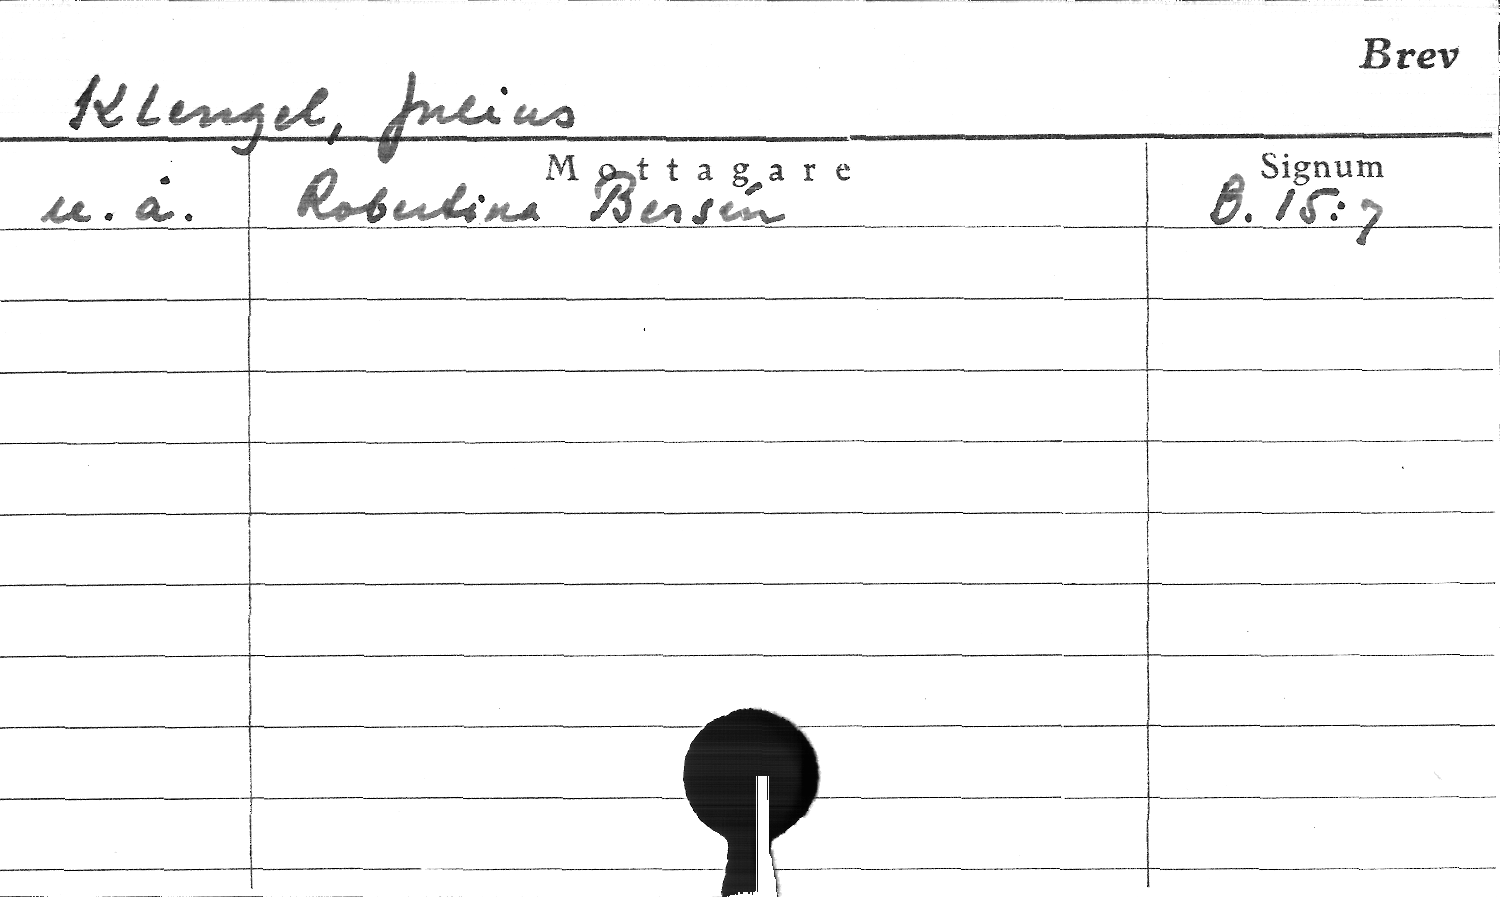 Brev
Klengel, Julius
Mottagare Signum
u.å. Robertina Bersén B. 15:7